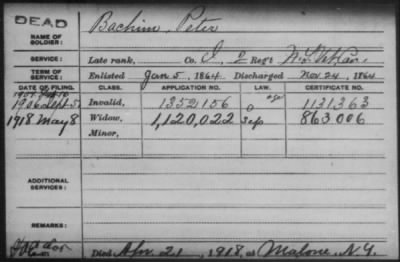 DEAD
NAME OF SOLDIER: Bachim, Peter
SERVICE: Late rank, Co. I, 2 Regt N.Y. Vet Cav.
TERM OF SERVICE: Enlisted Jan 5, 1864, Discharged Nov 24, 1864
DATE OF FILING. CLASS. APPLICATION NO. LAW. CERTIFICATE NO.
1906 Sept 5. Invalid, 1352156 O 1131363
1918 May 8 Widow, 1,120,022 Sep 863006
Minor,
ADDITIONAL SERVICES:
REMARKS:
Died Apr 21, 1918, at Malone, N.Y.